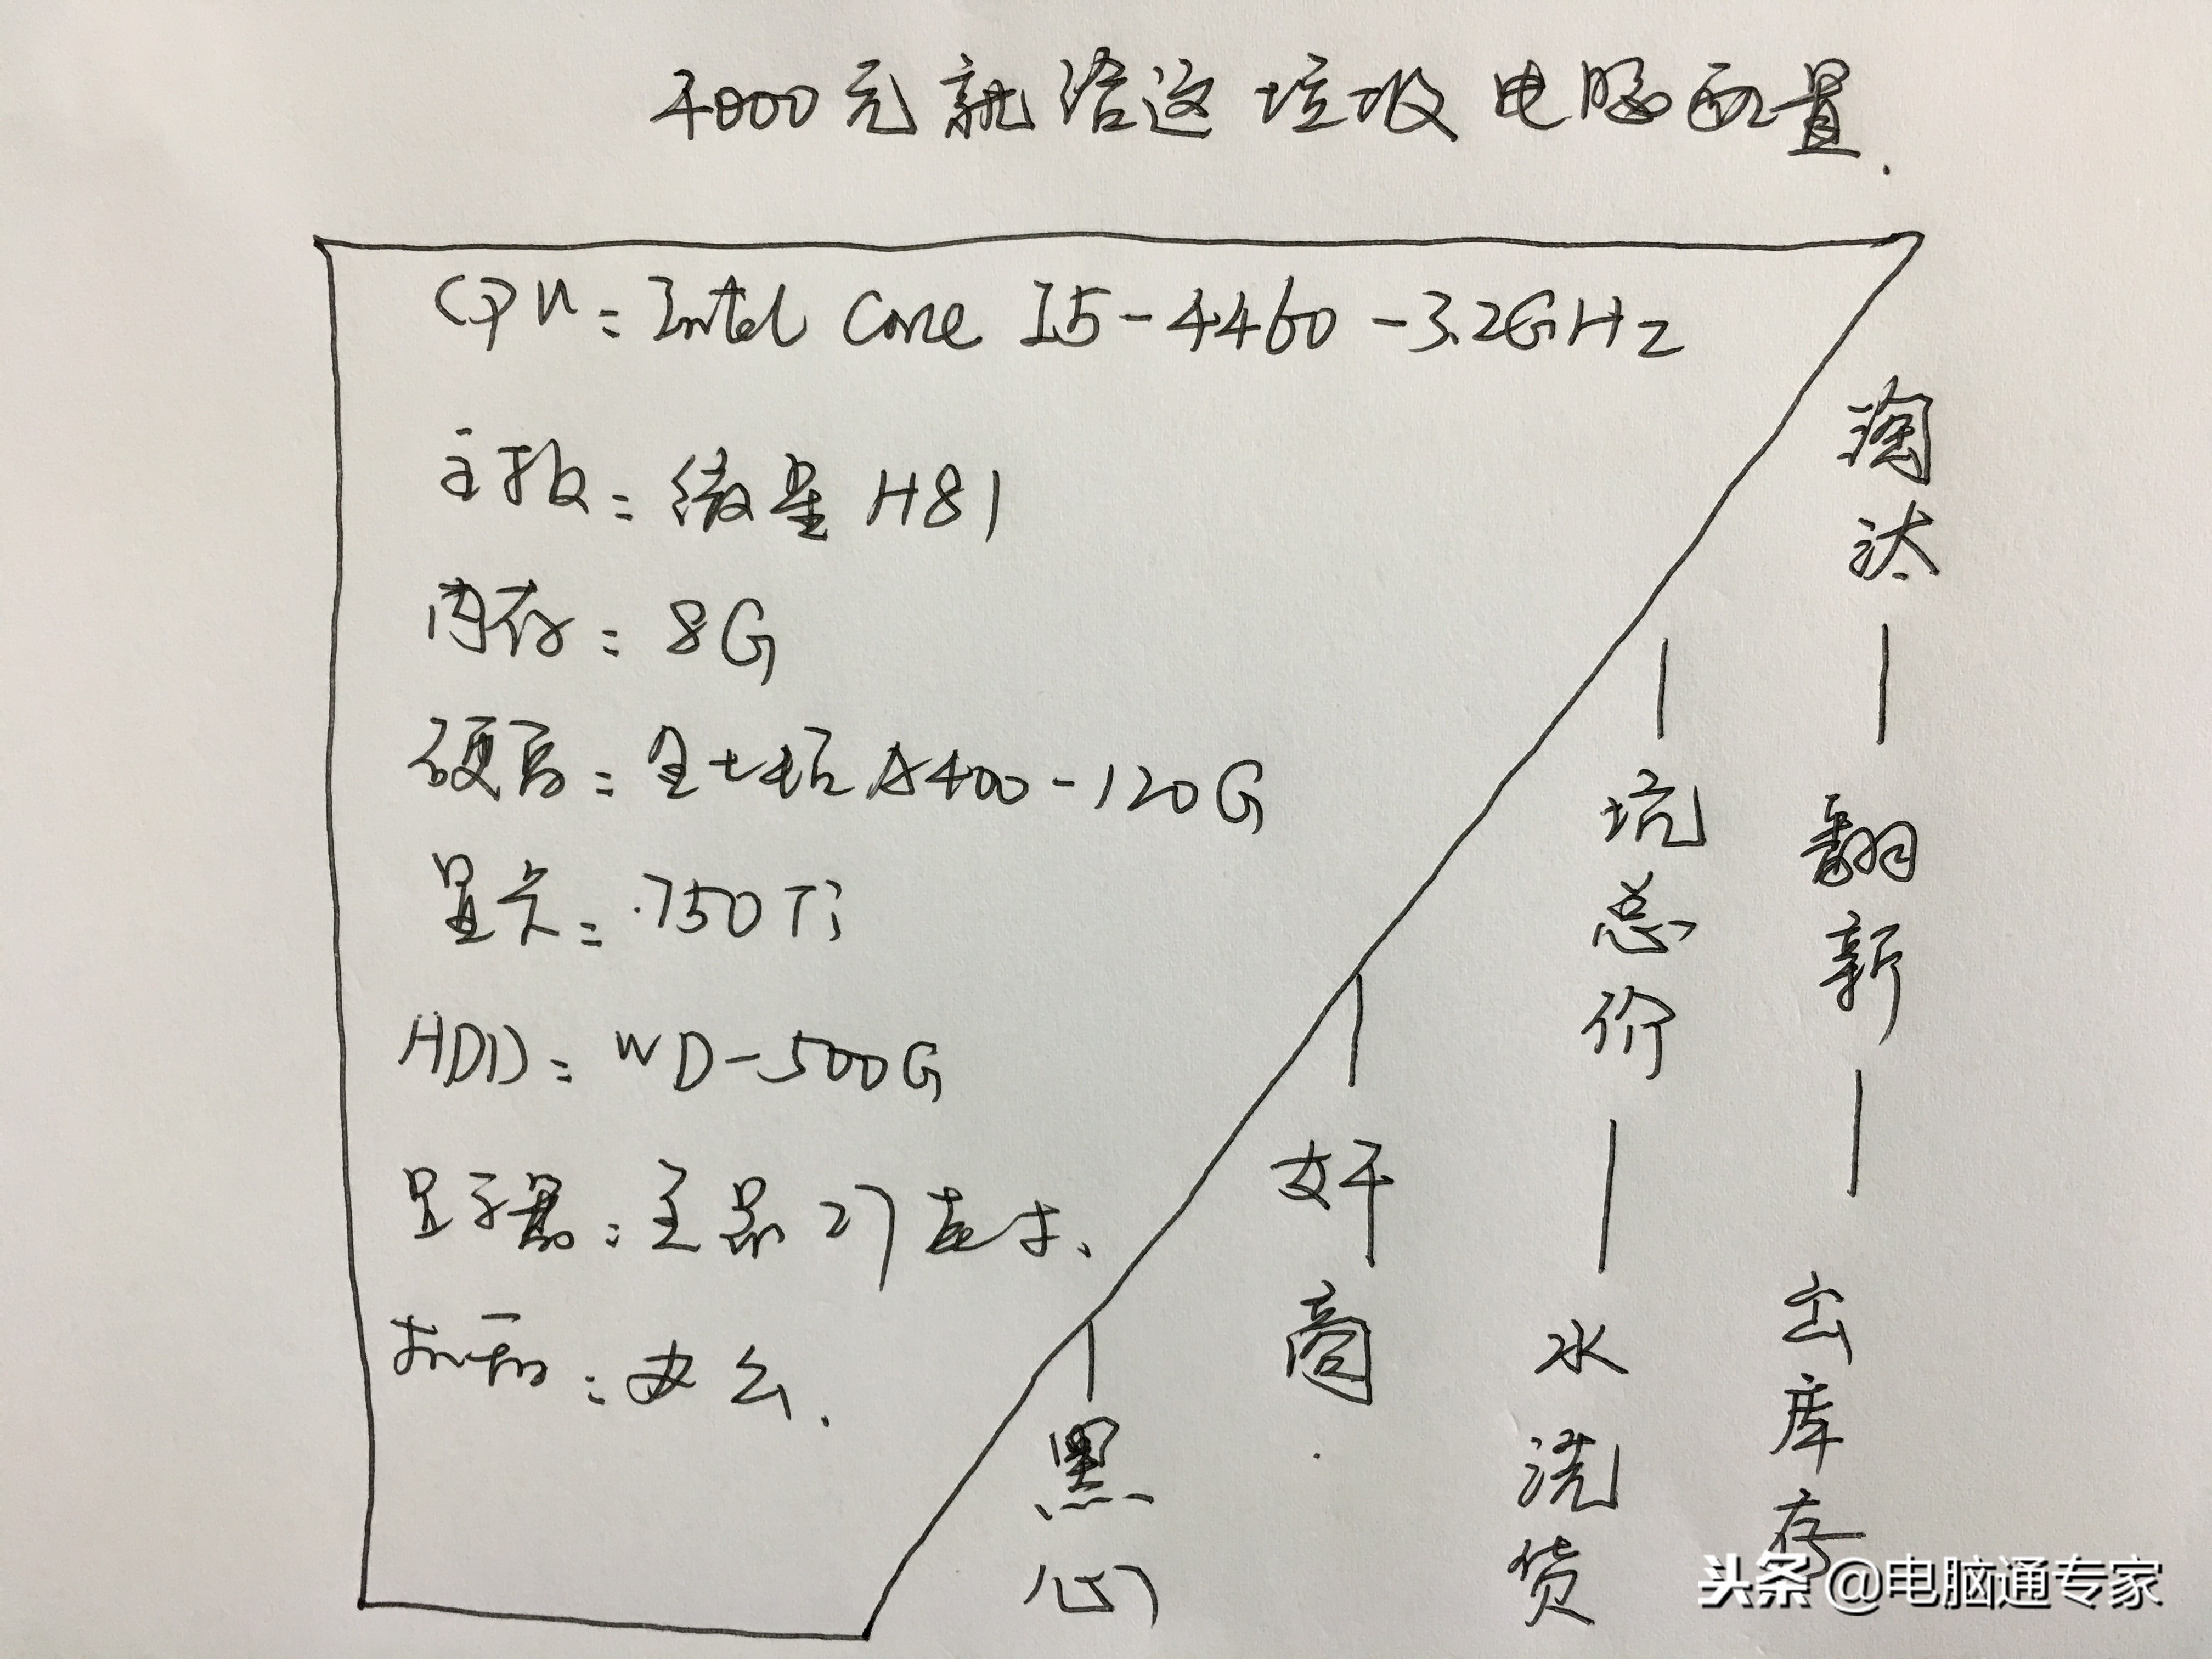 4000元就给这垃圾电脑配置.
CPU: Intel Core I5-4460-3.2GHz
主板: 微星 H81
内存: 8G
硬盘: 金士顿 A400-120G
显卡: 750Ti
HDD: WD-500G
显示器: 王品 27英寸、
机箱: 办公.
淘汰—翻新—出库存
—坑总价—水洗货
—奸商.
—黑心
头条 @电脑通专家